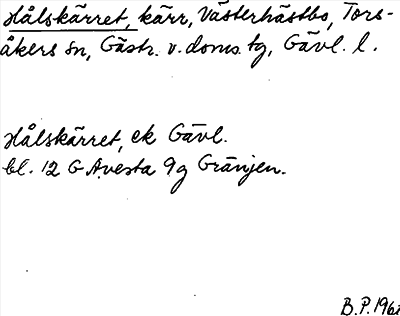 Hålskärret, kärr, Västerhästbo, Tors-
åkers sn, Gästr. v. doms. tg, Gävl. l.
Hålskärret, ek Gävl.
bl. 12 G Avesta 9g Gränjen.
B.P. 196